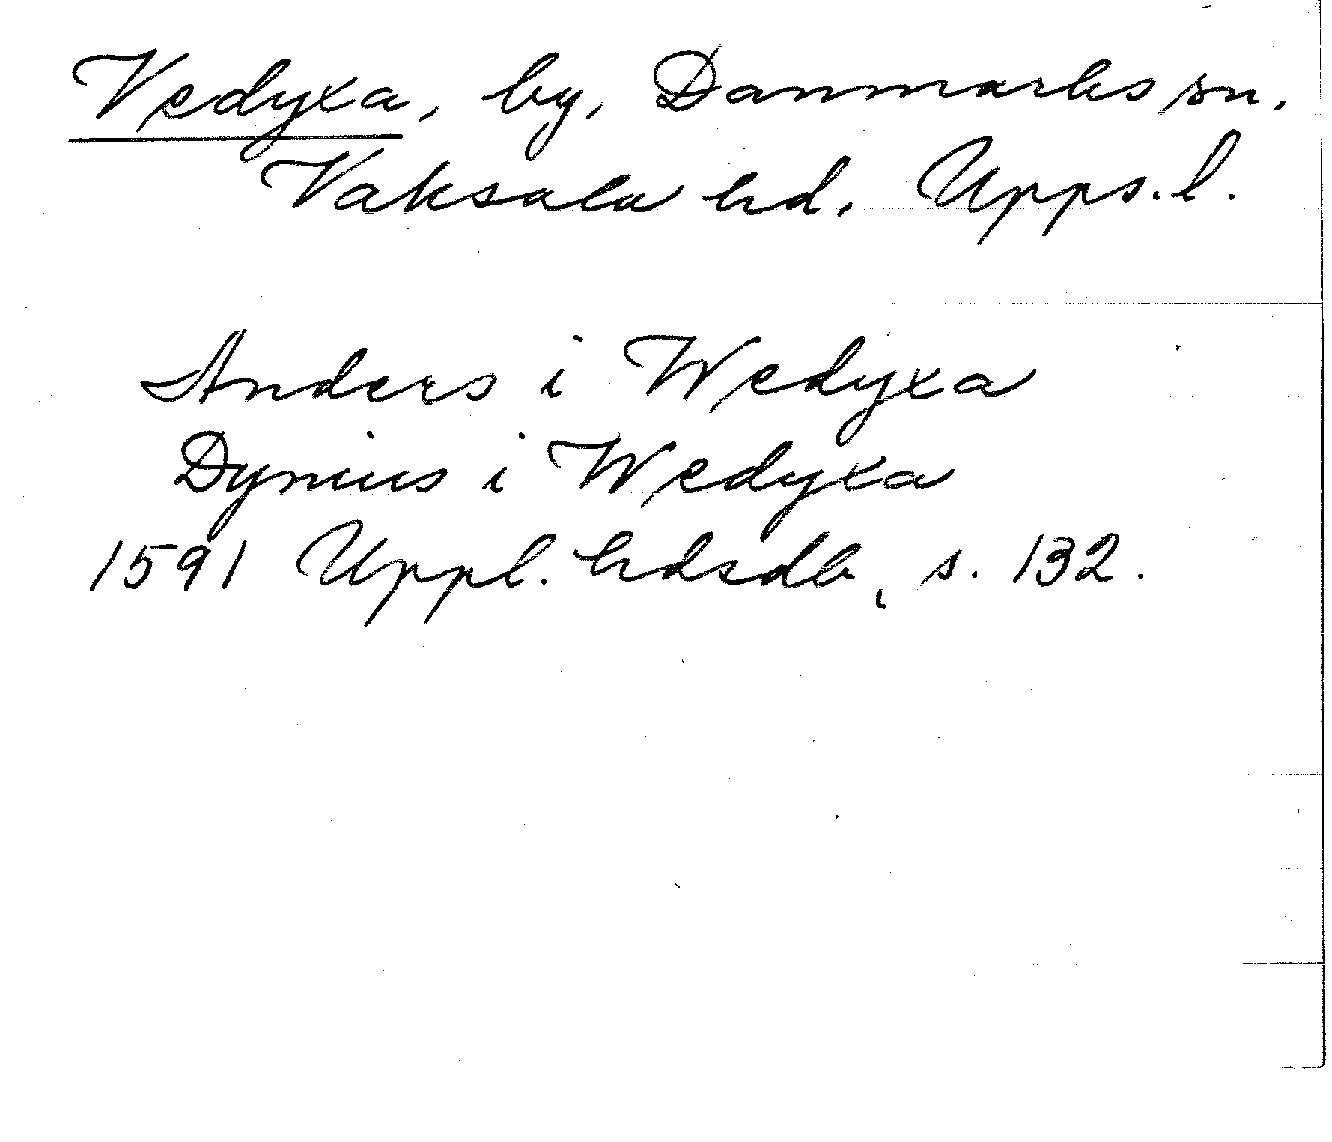 Vedyxa, by, Danmarks sn,
Vaksala hd, Upps.l.
Anders i Wedyxa
Dynius i Wedyxa
1591 Uppl. hdsdb, s. 132.